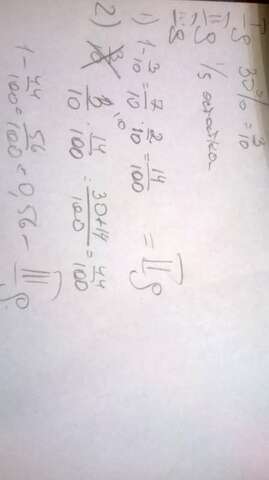 I р 30% = 3/10
II р 1/5 остатка
III р
1) 1 - 3/10 = 7/10 · 2/10 = 14/100 = II р
2) 3/10 · 14/100 = 30+14/100 = 44/100
1 - 44/100 = 56/100 = 0,56 - III р